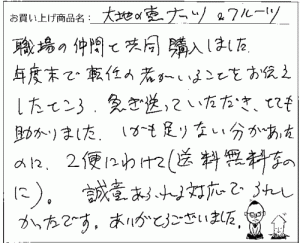 お買い上げ商品名： 大地の恵ナッツ&フルーツ
職場の仲間と共同購入しました。
年度末で転任の者がいることをお伝え
したところ、急ぎ送っていただき、とても
助かりました。しかも足りない分があった
のに、2便にわけて(送料無料なの
に)。誠意あふれる対応でうれし
かったです。ありがとうございました。